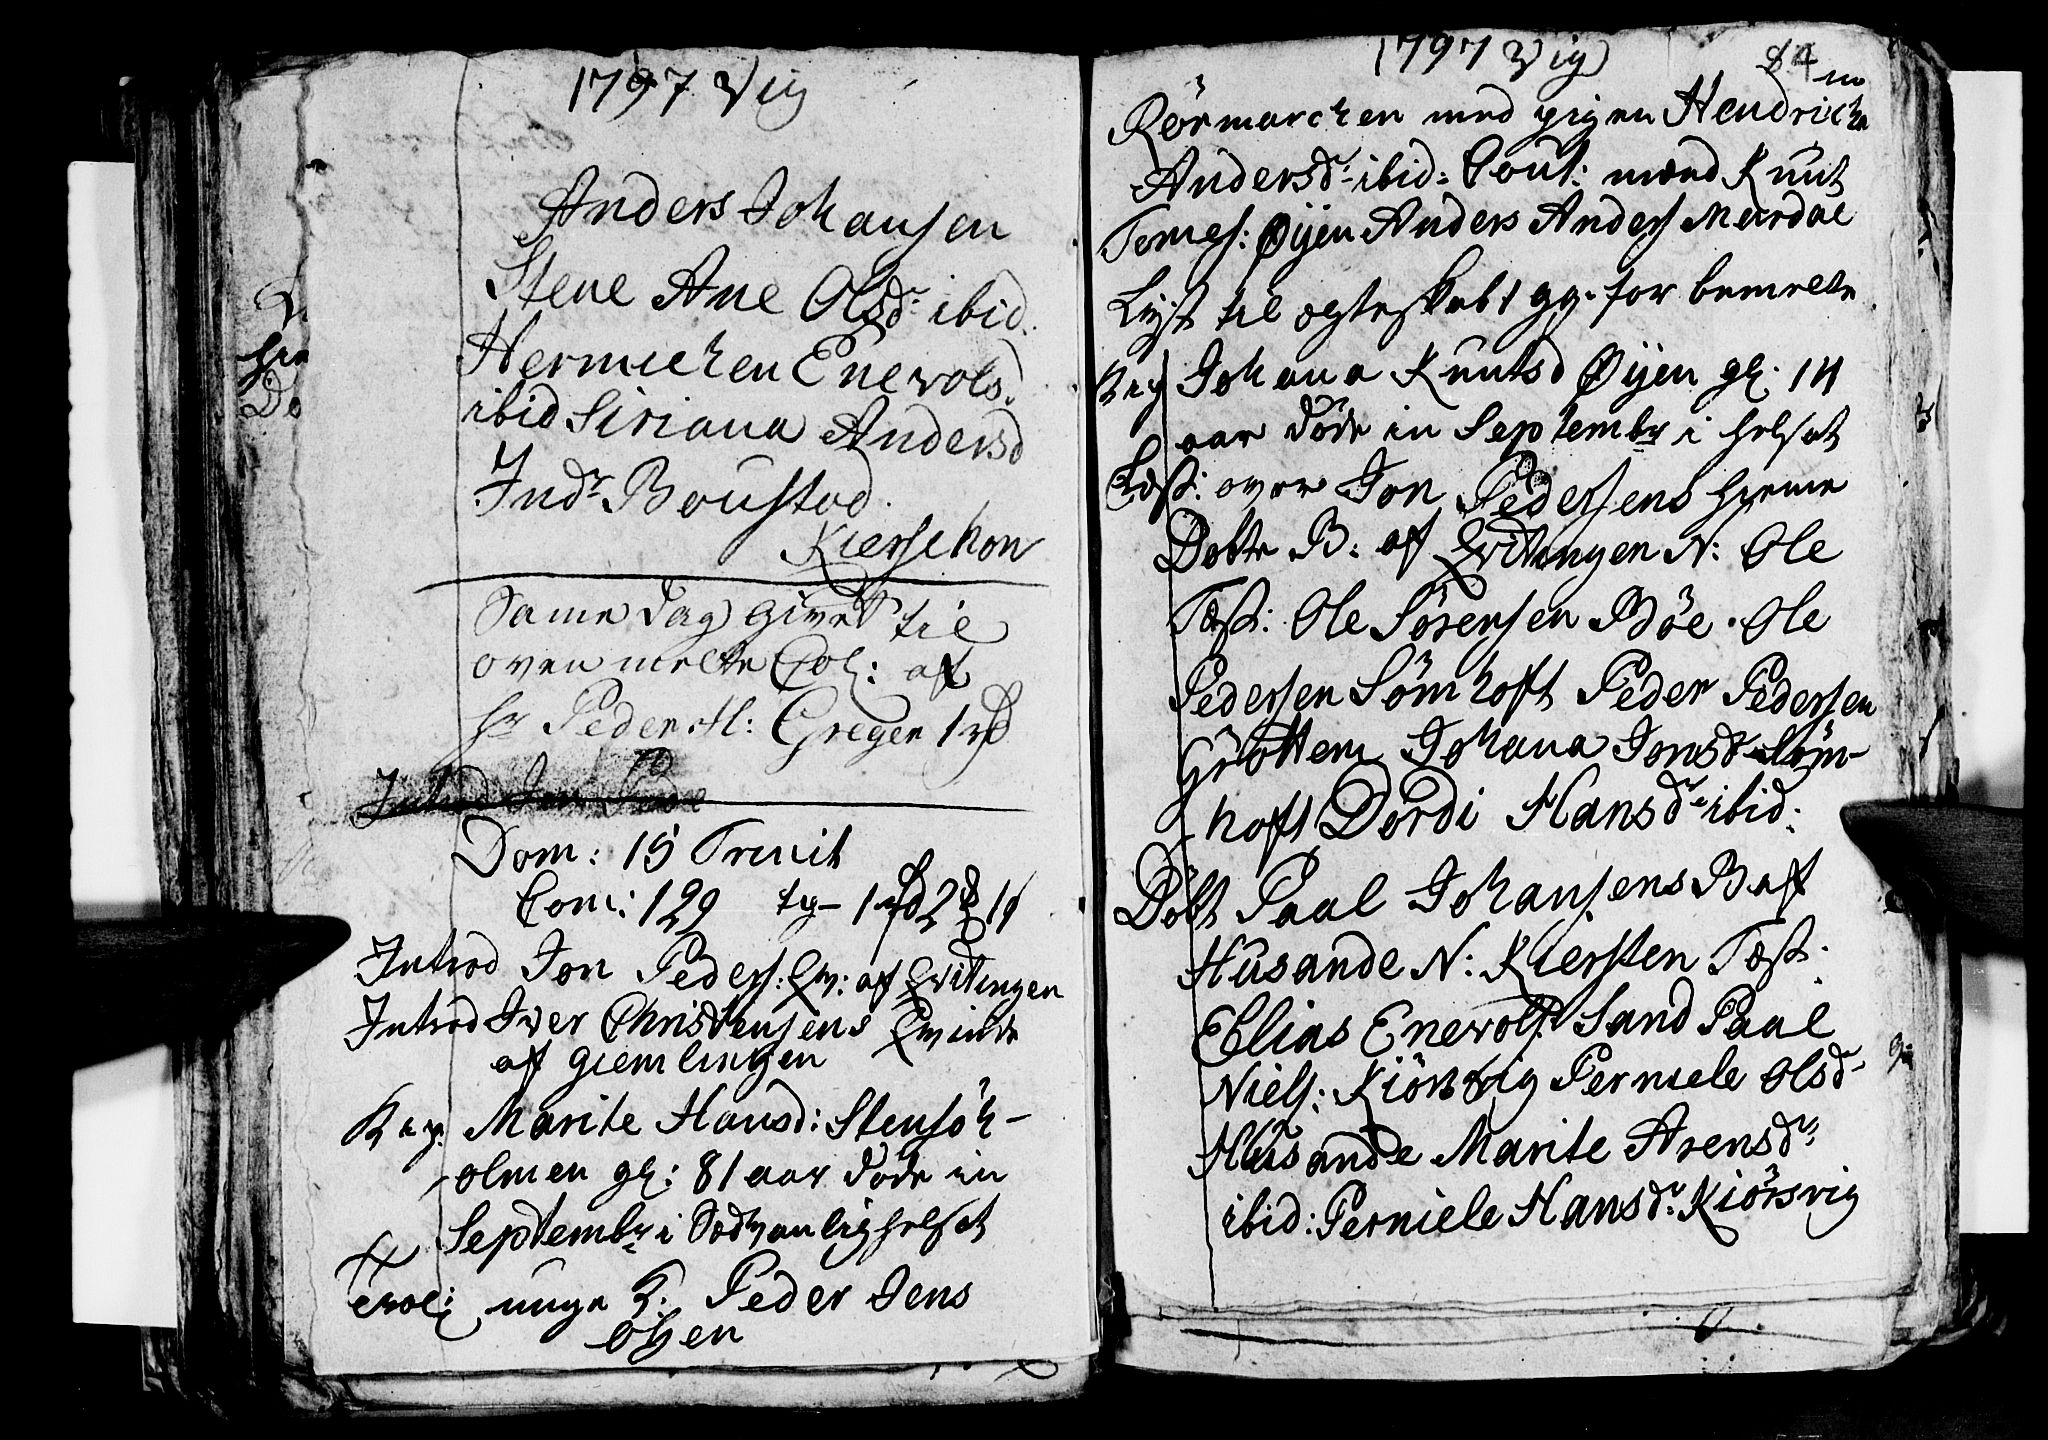 1797 Vig
Anders Johansen
Stene Ane Olsdr ibid.
Hermichen Enevols.
ibid Siriana Andersd
Indr Boustad.
Kierschou
Same Dag givet til
oven melte Col: af
Hr Peder H: Greger 1 rd
Introd Jon Peder
Dom: 15 Trinit
Com: 129 1 rd 2
Introd Jon Peders: Qv: af Qvitingen
Introd Iver Christensens Qvinde
af Giemlingen
Marite Hansd: Stensöh-
olmen gl: 81 aar döde in
Septembr i Sedvanlig helset
Trol: unge K. Peder Jens
Olsen
1797 Vig
84
Rörmarchen med pigen Hendriche
Andersdr ibid: Cout: mænd Knut
Tomes: Øyen Anders Anders Mærdal
Lyst til egteskab 1 gg. for bemelte
Johana Knutsd Øyen gl. 14
aar döde in Septembr i helset
Læst: over Jon Pedersens hieme
Döbte B: af Qvitingen N: Ole
Test: Ole Sörensen Böe. Ole
Pedersen Sömhoft Peder Pedersen
Gröttem Johana Jonsdr Söm-
hoft Dordi Hansdr ibid:
Döbt Paal Johansens B af
Husande N: Kiersten Test:
Elias Enevols: Sand Paal
Niels: Kiörsvig Perniele Olsdr
Husande Marite Arensdr
ibid: Perniele Hansdr Kiörsvig